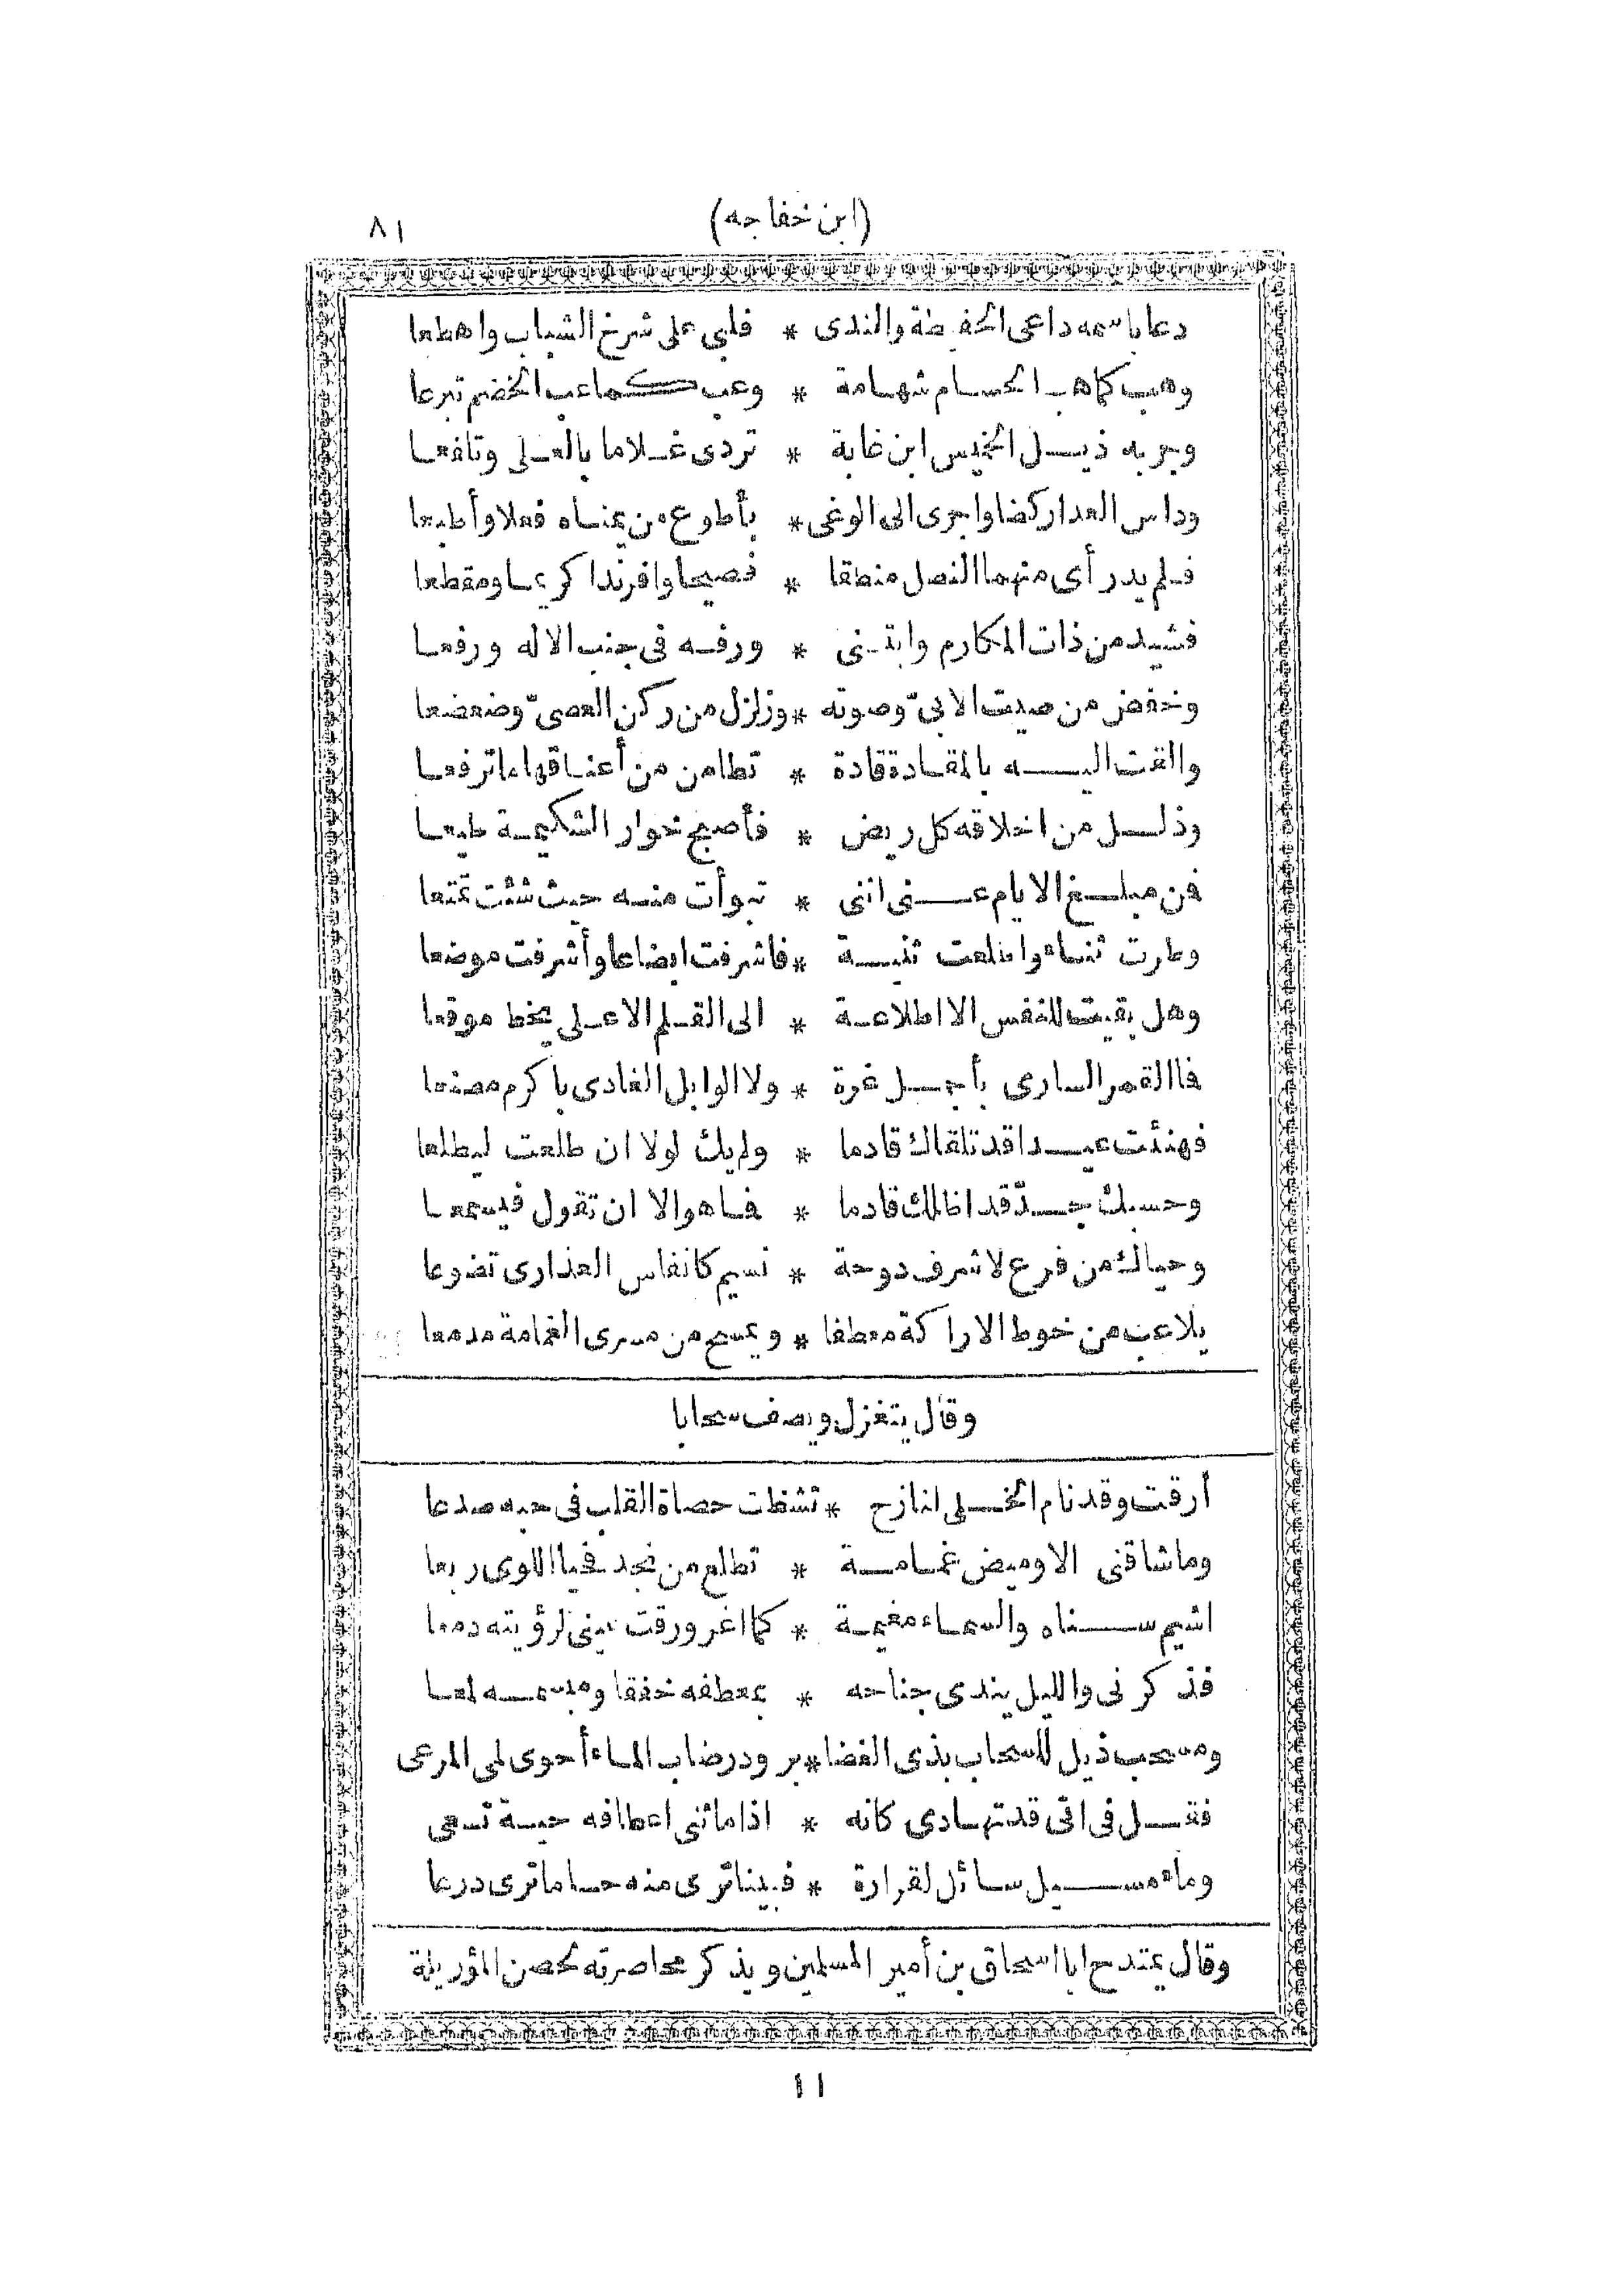 (ابن خفاجه) ٨١
دعا باسمه داعى الحفيظة والندى * فلبى على شرخ الشباب واهطعا
وهب كما هب الحسام شهامة * وعب كما عب الخضم تبرعا
وجر به ذيل الخميس ابن غابة * تردى غلاما بالعلى وتلفعا
وداس العدا ركضا واجرى الى الوغى * بأطوع من يمناه فعلا وأطبعا
فلم يدر أى منهما النصل منطقا * فصيحا وافرندا كريما ومقطعا
فشيد من ذات المكارم وابتنى * ورفه فى جنب الاله ورفعا
وخفض من صيت الابىّ وصوته * وزلزل من ركن العصىّ وضعضعا
والقت اليه بالمقادة قادة * تطامن من أعناقها ما ترفعا
وذلل من اخلاقه كل ريض * فأصبح خوار الشكيمة طيعا
فمن مبلغ الايام عنى اننى * تبوأت منه حيث شئت تمتعا
وطرت ثناء واطلعت ثنية * فاشرفت ايضاعا وأشرفت موضعا
وهل بقيت للنفس الا اطلاعة * الى القلم الاعلى يخط موقعا
فما القمر السارى بأجمل غرة * ولا الوابل الغادى باكرم مصنعا
فهنئت عيدا قد تلقاك قادما * ولم يك لولا ان طلعت ليطلعا
وحسبك جدّ قد اظلك قادما * فما هو الا ان تقول فيسمعا
وحياك من فرع لاشرف دوحة * نسيم كانفاس العذارى تضوعا
يلاعب من خوط الاراكة معطفا * ويمسح من مسرى الغمامة مدمعا
وقال يتغزل ويصف سحابا
أرقت وقد نام الخلى لنازح * تشظت حصاة القلب فى حبه صدعا
وما شاقنى الا وميض غمامة * تطلع من نجد فحيا اللوى ربعا
اشيم سناه والسماء مغيمة * كما اغرورقت عينى لرؤيته دمعا
فذكرنى والليل يندى جناحه * بمعطفه خفقا ومبسمه لمعا
ومسحب ذيل للسحاب بذى الغضا * برود رضاب الماء أحوى لمى المرعى
فقل فى اتى قد تهادى كانه * اذا ما ثنى اعطافه حية تسعى
وماء مسيل سائل لقرارة * فبينا ترى منه حساما ترى درعا
وقال يمتدح ابا اسحاق بن أمير المسلمين ويذكر محاصرته لحصن المؤريلة
١١